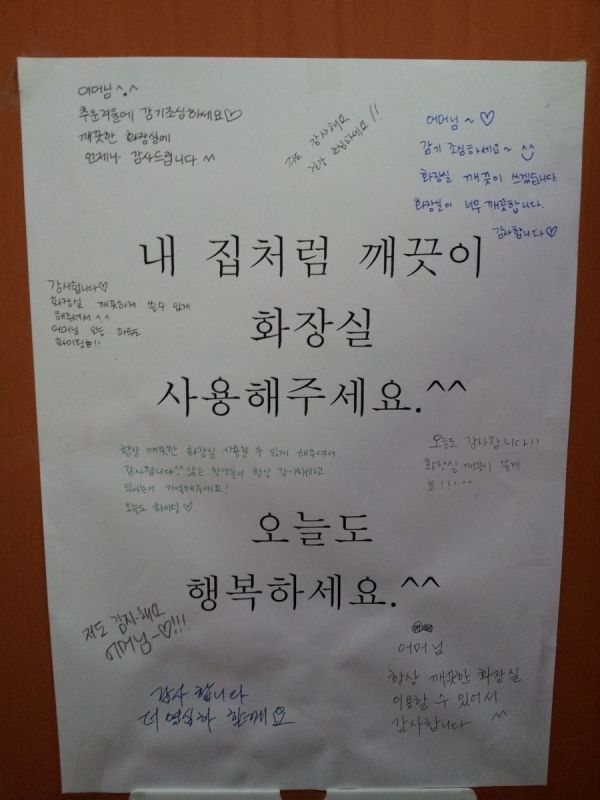 어머님 ^.^
추운겨울에 감기조심하세요♡
깨끗한 화장실에
언제나 감사드립니다 ^^
저도 감사해요
건강 조심하세요!!
어머님~ ♡
감기 조심하세요~
화장실 깨끗이 쓰겠습니다
화장실이 너무 깨끗합니다.
감사합니다♡
내 집처럼 깨끗이
화장실
사용해주세요.^^
감사합니다♡
화장실 깨끗하게 쓸수 있게
해주셔서 ^^
어머님 오늘 하루도
화이팅!!
항상 깨끗한 화장실 사용할 수 있게 해주셔서
감사합니다!^^ 많은 학생들이 항상 감사해하고
있다는거 기억해주세요!
오늘도 화이팅♡
오늘도 감사합니다!!
화장실 깨끗이 쓸게
요!!^^
오늘도
행복하세요.^^
저도 감사해요
어머님~♡!!!
감사 합니다
더 열심히 할께요
어머님
항상 깨끗한 화장실
이용할 수 있어서
감사합니다 ^^